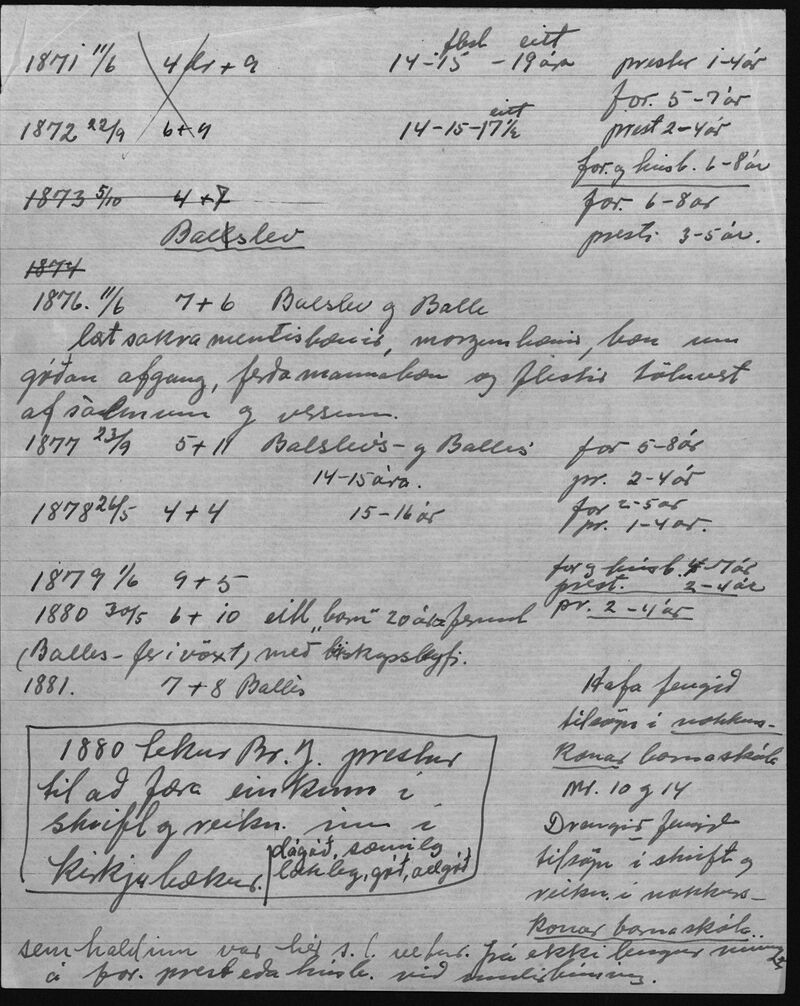 flest eitt
1871 11/6 4 dr + 9 14-15 - 19 ára prestur 1-4 ár
for. 5-7 ár
eitt
1872 22/9 6+9 14-15-17½ prest 2-4 ár
for. og húsb. 6-8 ár
1873 5/10 4+7 for. 6-8 ár
Balslev presti 3-5 ár.
1874
1876. 11/6 7+6 Balslev og Balle
læt sakramentisbænir, morgunbænir, bæn um
góðan afgang, ferðamannabæn og flestir töluvert
af sálmum og versum.
1877 23/9 5+11 Balslevs- og Balles for 5-8 ár
14-15 ára. pr. 2-4 ár
1878 26/5 4+4 15-16 ár for 2-5 ár
pr. 1-4 ár.
for og húsb. 4-7 ár
1879 1/6 9+5 prest. 2-4 ár
1880 30/5 6+10 eitt „barn" 20 ára fermt pr. 2-4 ár
(Balles- fer í vöxt) með biskupsleyfi.
1881. 7+8 Balles Hafa fengið
tilsögn í nokkurs-
1880 tekur Br. J. prestur konar barnaskóla
til að færa einkunn í Nr. 10 og 14
skrift og reikn. inn í Drengir fengið
kirkjubækur. dágóð, sæmileg tilsögn í skrift og
lakleg, góð, ádgóð reikn. í nokkurs-
konar barnaskóla..
sem haldinn var hér s.l. vetur. Frá ekki lengur
á for. prest eða húsb. við undirbúning.